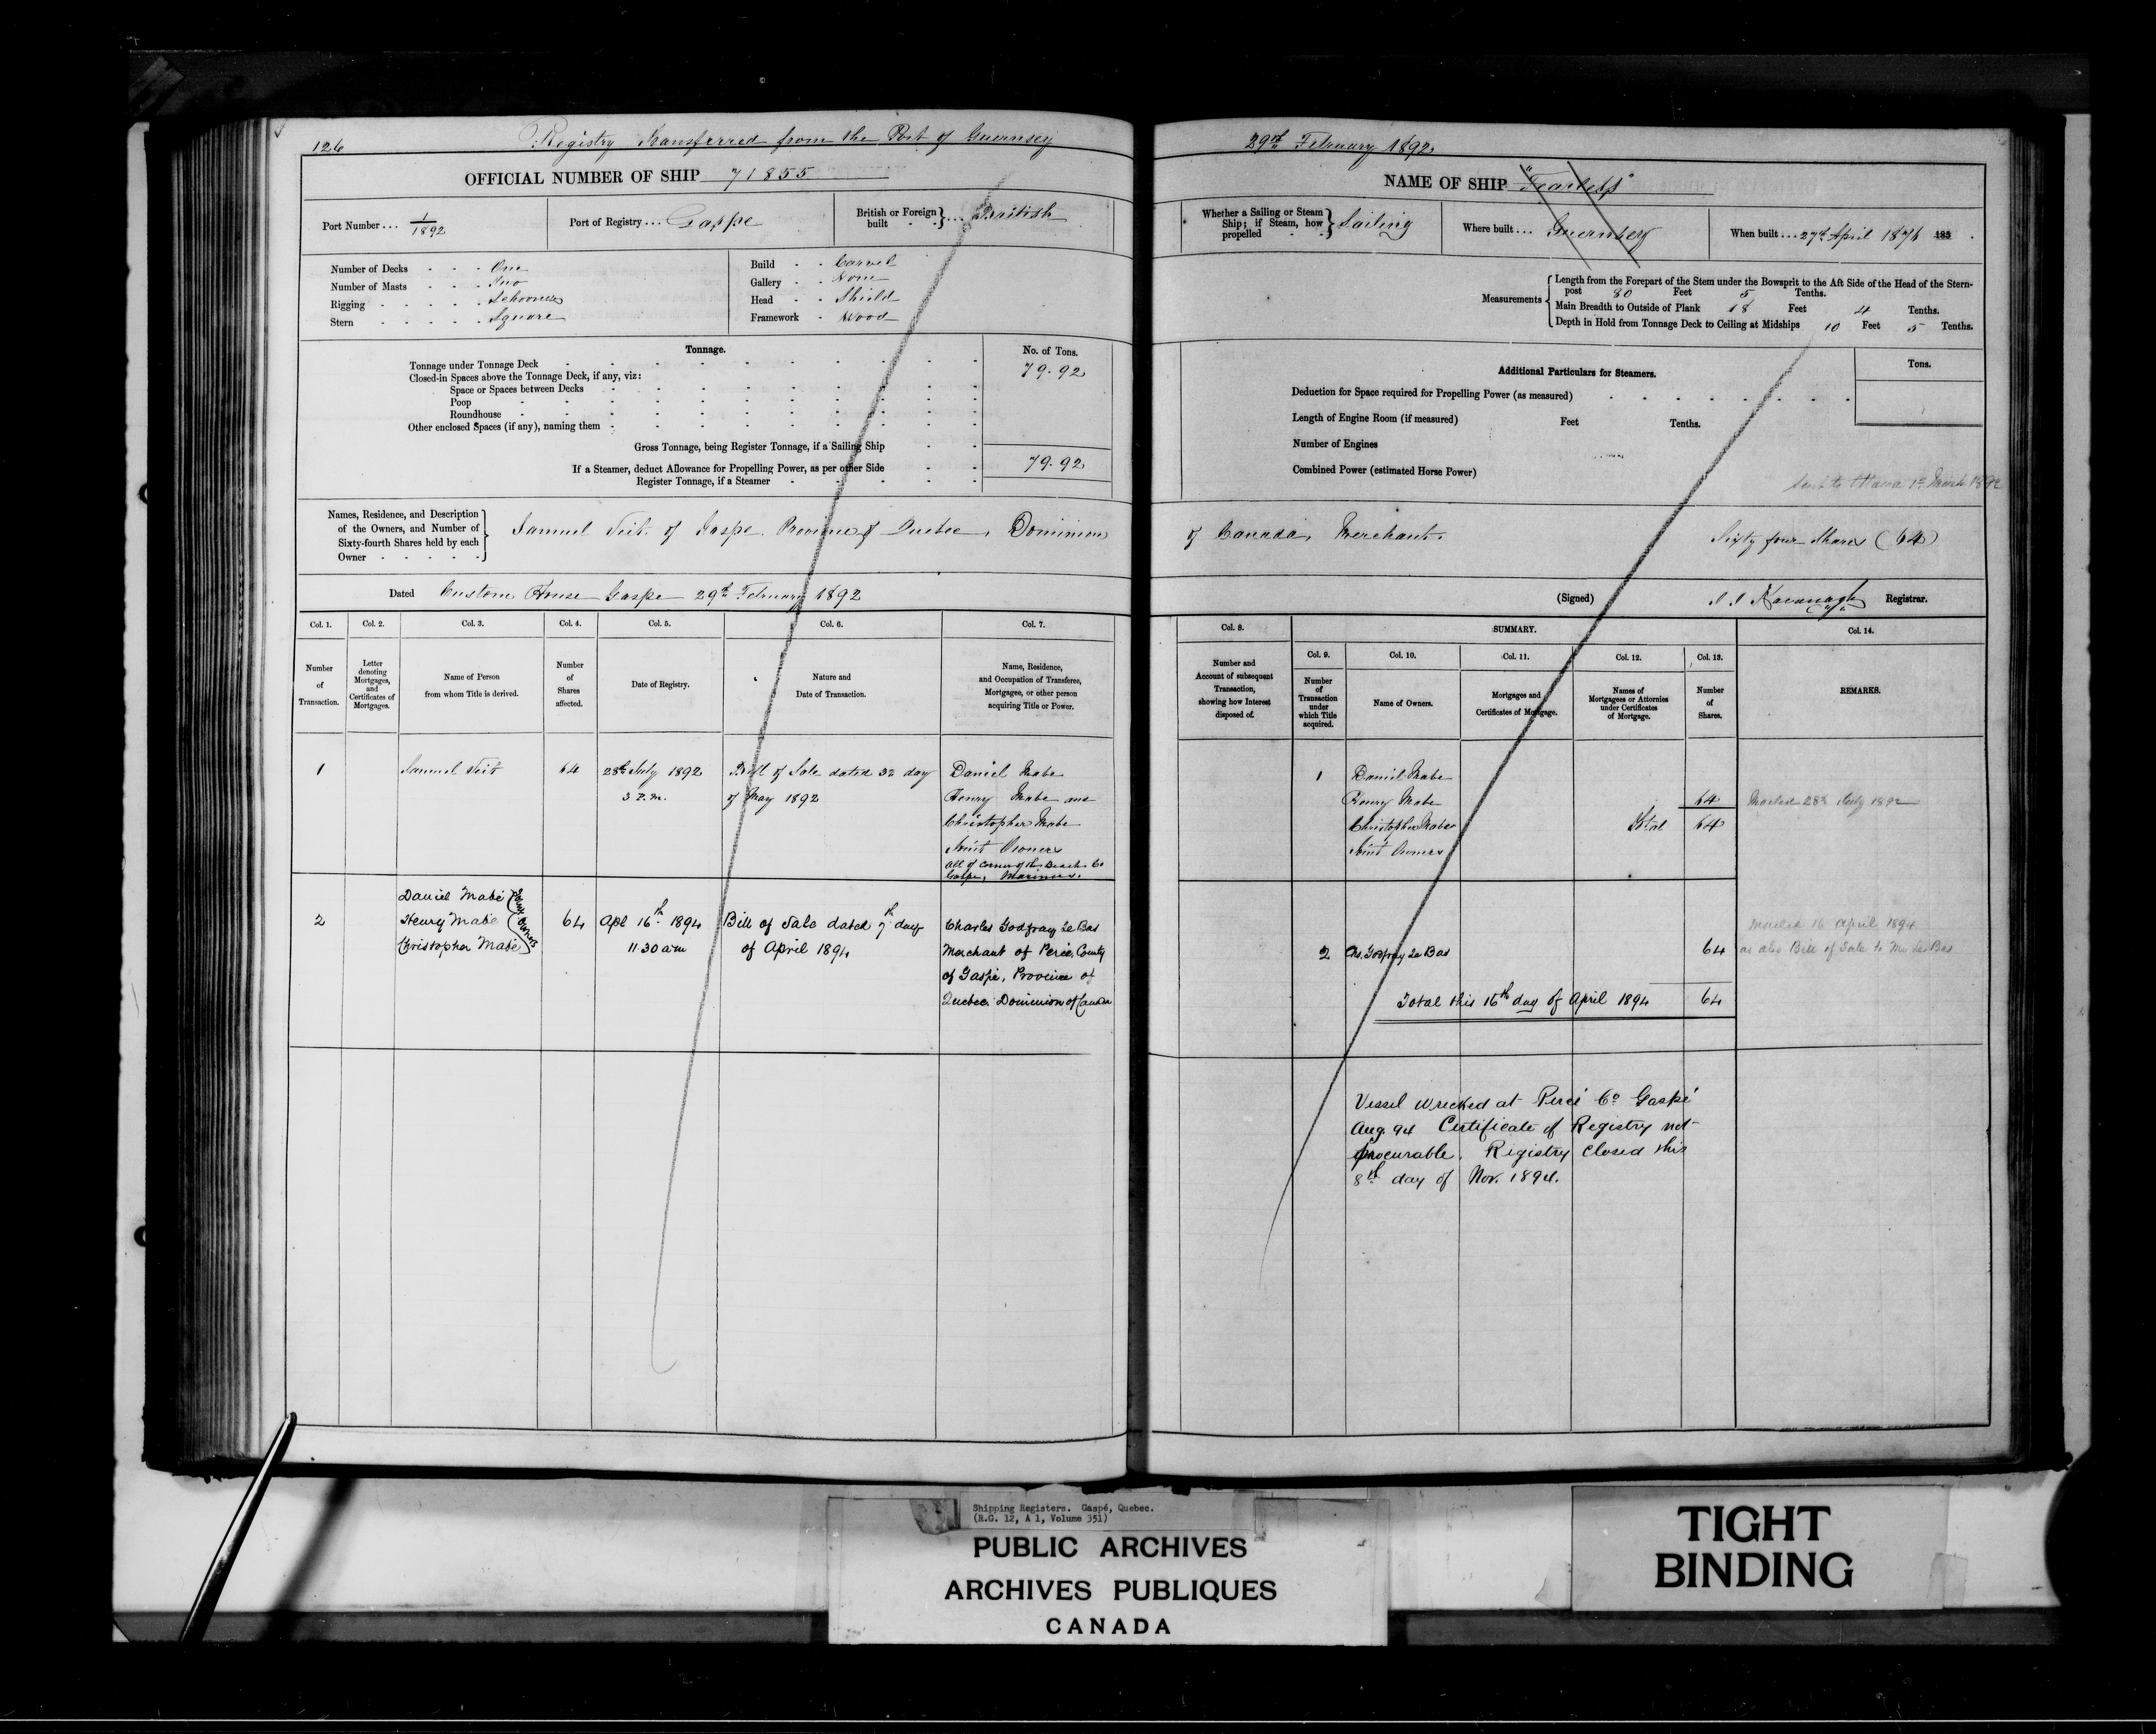 126 Registry Transferred from the Port of Guernsey
OFFICIAL NUMBER OF SHIP 71855
Port Number ... 1/1892
Port of Registry ... Gaspe
British or Foreign built } ... British
Number of Decks - - - One
Number of Masts - - - Two
Rigging - - - - - Schooner
Stern - - - - - Square
Build - - Carvel
Gallery - - None
Head - - Shield
Framework - Wood
Tonnage.
No. of Tons.
Tonnage under Tonnage Deck 79.92
Closed-in Spaces above the Tonnage Deck, if any, viz:
Space or Spaces between Decks
Poop
Roundhouse
Other enclosed Spaces (if any), naming them
Gross Tonnage, being Register Tonnage, if a Sailing Ship
If a Steamer, deduct Allowance for Propelling Power, as per other Side 79.92
Register Tonnage, if a Steamer
Names, Residence, and Description
of the Owners, and Number of
Sixty-fourth Shares held by each
Owner
Samuel of Gaspe Province of Quebec, Dominion
Dated Custom House Gaspe 29th February 1892
Col. 1. Col. 2. Col. 3. Col. 4. Col. 5. Col. 6. Col. 7.
Number of Transaction.
Letter denoting Mortgages, and Certificates of Mortgages.
Name of Person from whom Title is derived.
Number of Shares affected.
Date of Registry.
Nature and Date of Transaction.
Name, Residence, and Occupation of Transferee, Mortgagee, or other person acquiring Title or Power.
1 Samuel 64 28th July 1892 Bill of Sale dated day Daniel Mabe
3 P.m. of May 1892 Henry Mabe and
Christopher Mabe
Joint Owners
all of Corner of the Beach Co
Gaspe, Mariners.
Daniel Mabe
2 Henry Mabe 64 Apl 16th 1894 Bill of Sale dated 7th day Charles Godfray Le Bas
Christopher Mabe Joint Owners 11.30 am of April 1894 Merchant of Percé, County
of Gaspé, Province of
Quebec. Dominion of Canada
29th February 1892
NAME OF SHIP "Fearless"
Whether a Sailing or Steam Ship; if Steam, how propelled } Sailing
Where built ... Guernsey
When built ... 27th April 1876 185 .
Measurements
Length from the Forepart of the Stem under the Bowsprit to the Aft Side of the Head of the Stern-
post 80 Feet 5 Tenths.
Main Breadth to Outside of Plank 18 Feet 4 Tenths.
Depth in Hold from Tonnage Deck to Ceiling at Midships 10 Feet 5 Tenths.
Additional Particulars for Steamers.
Tons.
Deduction for Space required for Propelling Power (as measured)
Length of Engine Room (if measured) Feet Tenths.
Number of Engines
Combined Power (estimated Horse Power)
Sent to Ottawa 1st March 1892
of Canada, Merchant. Sixty four Shares (64)
(Signed) Kavanagh Registrar.
Col. 8. SUMMARY. Col. 14.
Col. 9. Col. 10. Col. 11. Col. 12. Col. 13.
Number and Account of subsequent Transaction, showing how Interest disposed of.
Number of Transaction under which Title acquired.
Name of Owners.
Mortgages and Certificates of Mortgage.
Names of Mortgagees or Attornies under Certificates of Mortgage.
Number of Shares.
REMARKS.
1 Daniel Mabe
Henry Mabe 64 Mailed 28th July 1892
Christopher Mabe Total 64
Joint Owners
Mailed 16 April 1894
2 Chs. Godfray Le Bas 64 as also Bill of Sale to Mr Le Bas
Total this 16th day of April 1894 64
Vessel wrecked at Percé Co Gaspé
Aug. 94 Certificate of Registry not
procurable. Registry closed this
8th day of Nov. 1894.
Shipping Registers. Gaspé, Quebec.
(R.G. 12, A 1, Volume 351)
PUBLIC ARCHIVES
ARCHIVES PUBLIQUES
CANADA
TIGHT
BINDING